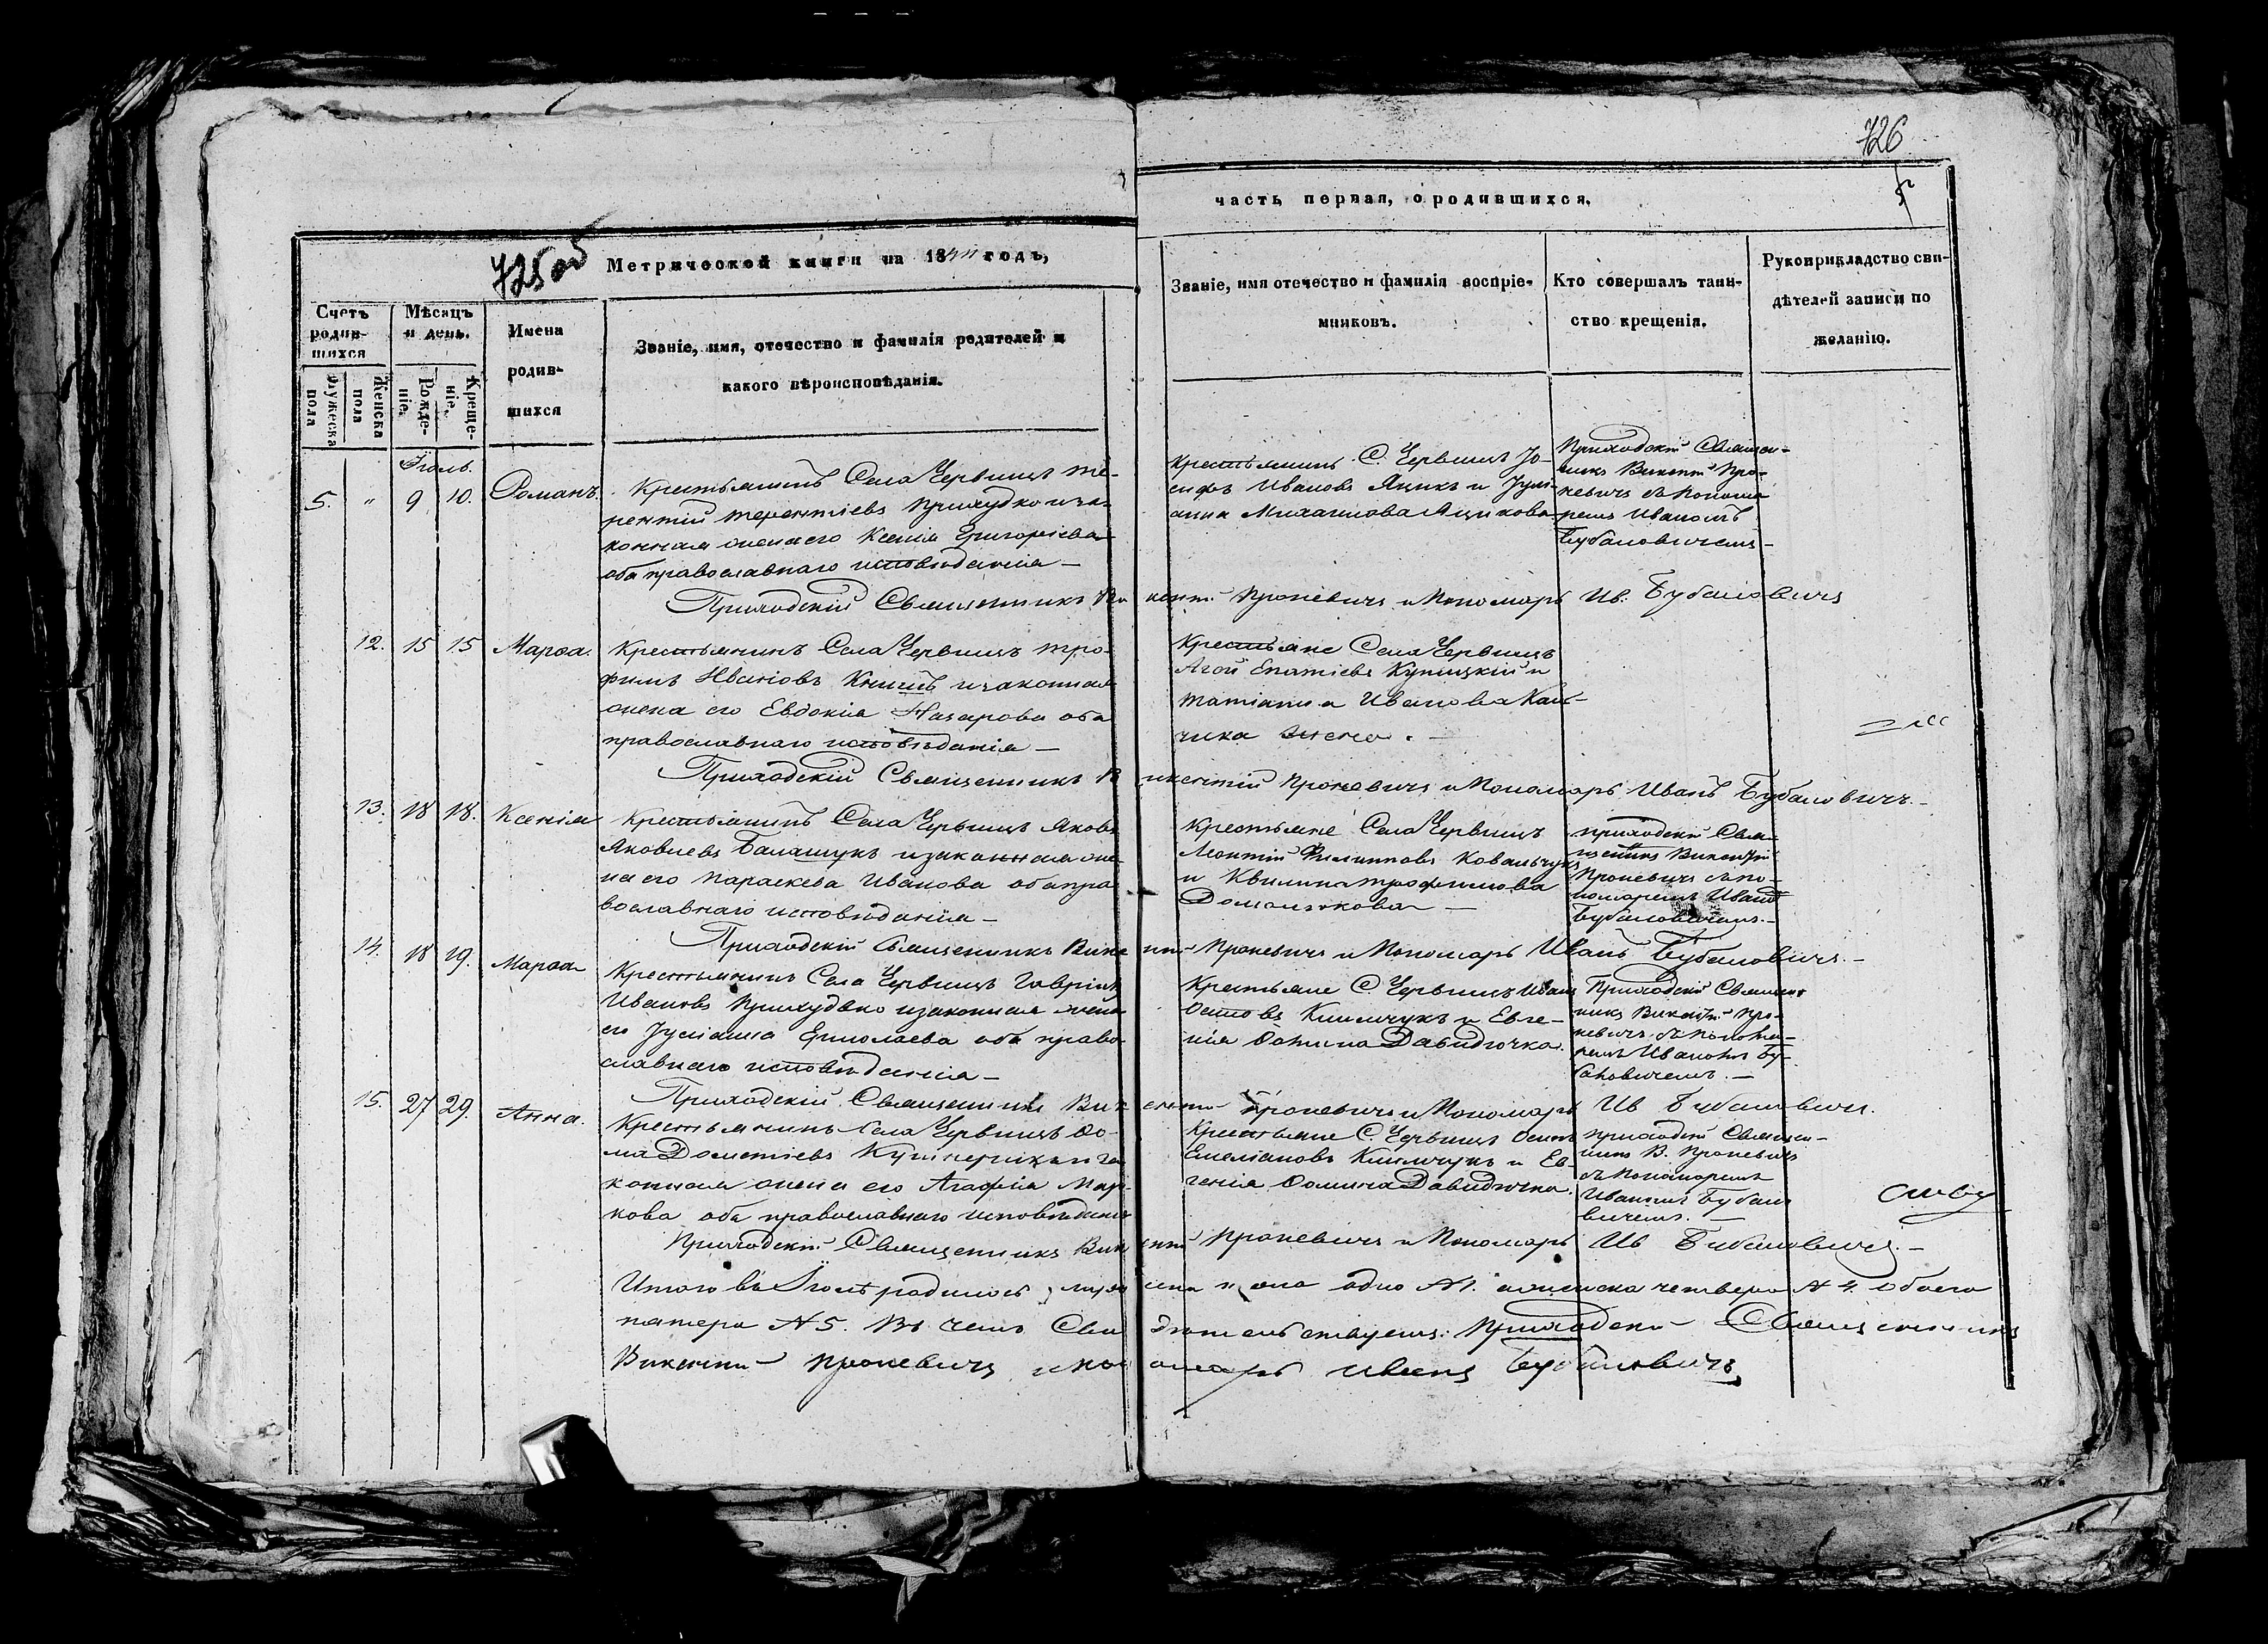 726
725об
Метрической книги на 18 годъ,
часть первая, о родившихся.
Счетъ родившихся
Мѣсяцъ и день.
Имена родившихся
Званіе, имя, отечество и фамилія родителей и какого вѣроисповѣданія.
Званіе, имя отечество и фамилія воспріемниковъ.
Кто совершалъ таинство крещенія.
Рукоприкладство свидѣтелей записи по желанію.
Мужеска пола
Женска пола
Рожденіе.
Крещеніе.
Іюль.
5. " 9 10. Романъ.
Крестьянинъ Села Червищъ Те-
рентій Терентіевъ и за-
конная жена его Ксенія Григоріева
оба православнаго исповѣданія —
Крестьянинъ С. Червищъ Іо-
сифъ Ивановъ Яцикъ и Іулі-
анна Михаилова Яцикова
Приходскій Священ-
никъ Викент. Про-
невичъ съ Понома-
ремъ Иваномъ
Бубановичемъ —
Приходскій Священникъ Викент. Проневичъ и Пономарь Ив. Бубановичъ
12. 15 15 Марѳа.
Крестьянинъ Села Червищъ Тро-
фимъ Ивановъ и законная
жена его Евдокія Назарова оба
православнаго исповѣданія —
Крестьяне Села Червищъ
Епатіевъ и
Татіанна Иванова
жена. —
Приходскій Священникъ Викентій Проневичъ и Пономарь Иванъ Бубановичъ. —
13. 18 18. Ксенія
Крестьянинъ Села Червищъ Яковъ
Яковлевъ Балашукъ и законная же-
на его Параскева Иванова оба пра-
вославнаго исповѣданія —
Крестьяне Села Червищъ
Леонтій Филипповъ Ковальчукъ
и Квилина Трофимова
—
приходскій Свя-
щенникъ Викентій
Проневичъ съ По-
номаремъ Иваномъ
Бубановичемъ. —
Приходскій Священникъ Викент. Проневичъ и Пономарь Иванъ Бубановичъ. —
14. 18 19. Марѳа
Крестьянинъ Села Червищъ Гавріилъ
Ивановъ и законная жена
его Іуліанна Ермолаева оба право-
славнаго исповѣданія —
Крестьяне С. Червищъ Иванъ
Осиповъ Климчукъ и Евге-
нія Давидючка.
Приходскій Священ-
никъ Викент. Про-
невичъ съ Понома-
ремъ Иваномъ Бу-
бановичемъ. —
Приходскій Священникъ Викент. Проневичъ и Пономарь Ив Бубановичъ.
15. 27 29. Анна.
Крестьянинъ Села Червищъ Ѳо-
ма Дометіевъ и за-
конная жена его Агафія Мар-
кова оба православнаго исповѣданія
Крестьяне С. Червищъ Осипъ
Емеліановъ Климчукъ и Ев-
генія Ѳомина Давидючка.
приходскій Священ-
никъ В. Проневичъ
съ Пономаремъ
Иваномъ Бубано-
вичемъ. —
Приходскій Священникъ Викент Проневичъ и Пономарь Ив Бубановичъ. —
Итого въ Іюлѣ родилось мужеска пола одно № 1. а женска четверо № 4. Обоего
пятеро № 5. Въ чемъ Свидѣтельствуемъ: Приходскій Священникъ
Викентій Проневичъ и Пономарь Иванъ Бубановичъ